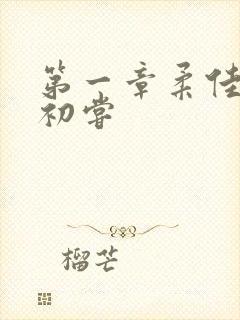 第一章柔佳
初嘗
榴芒